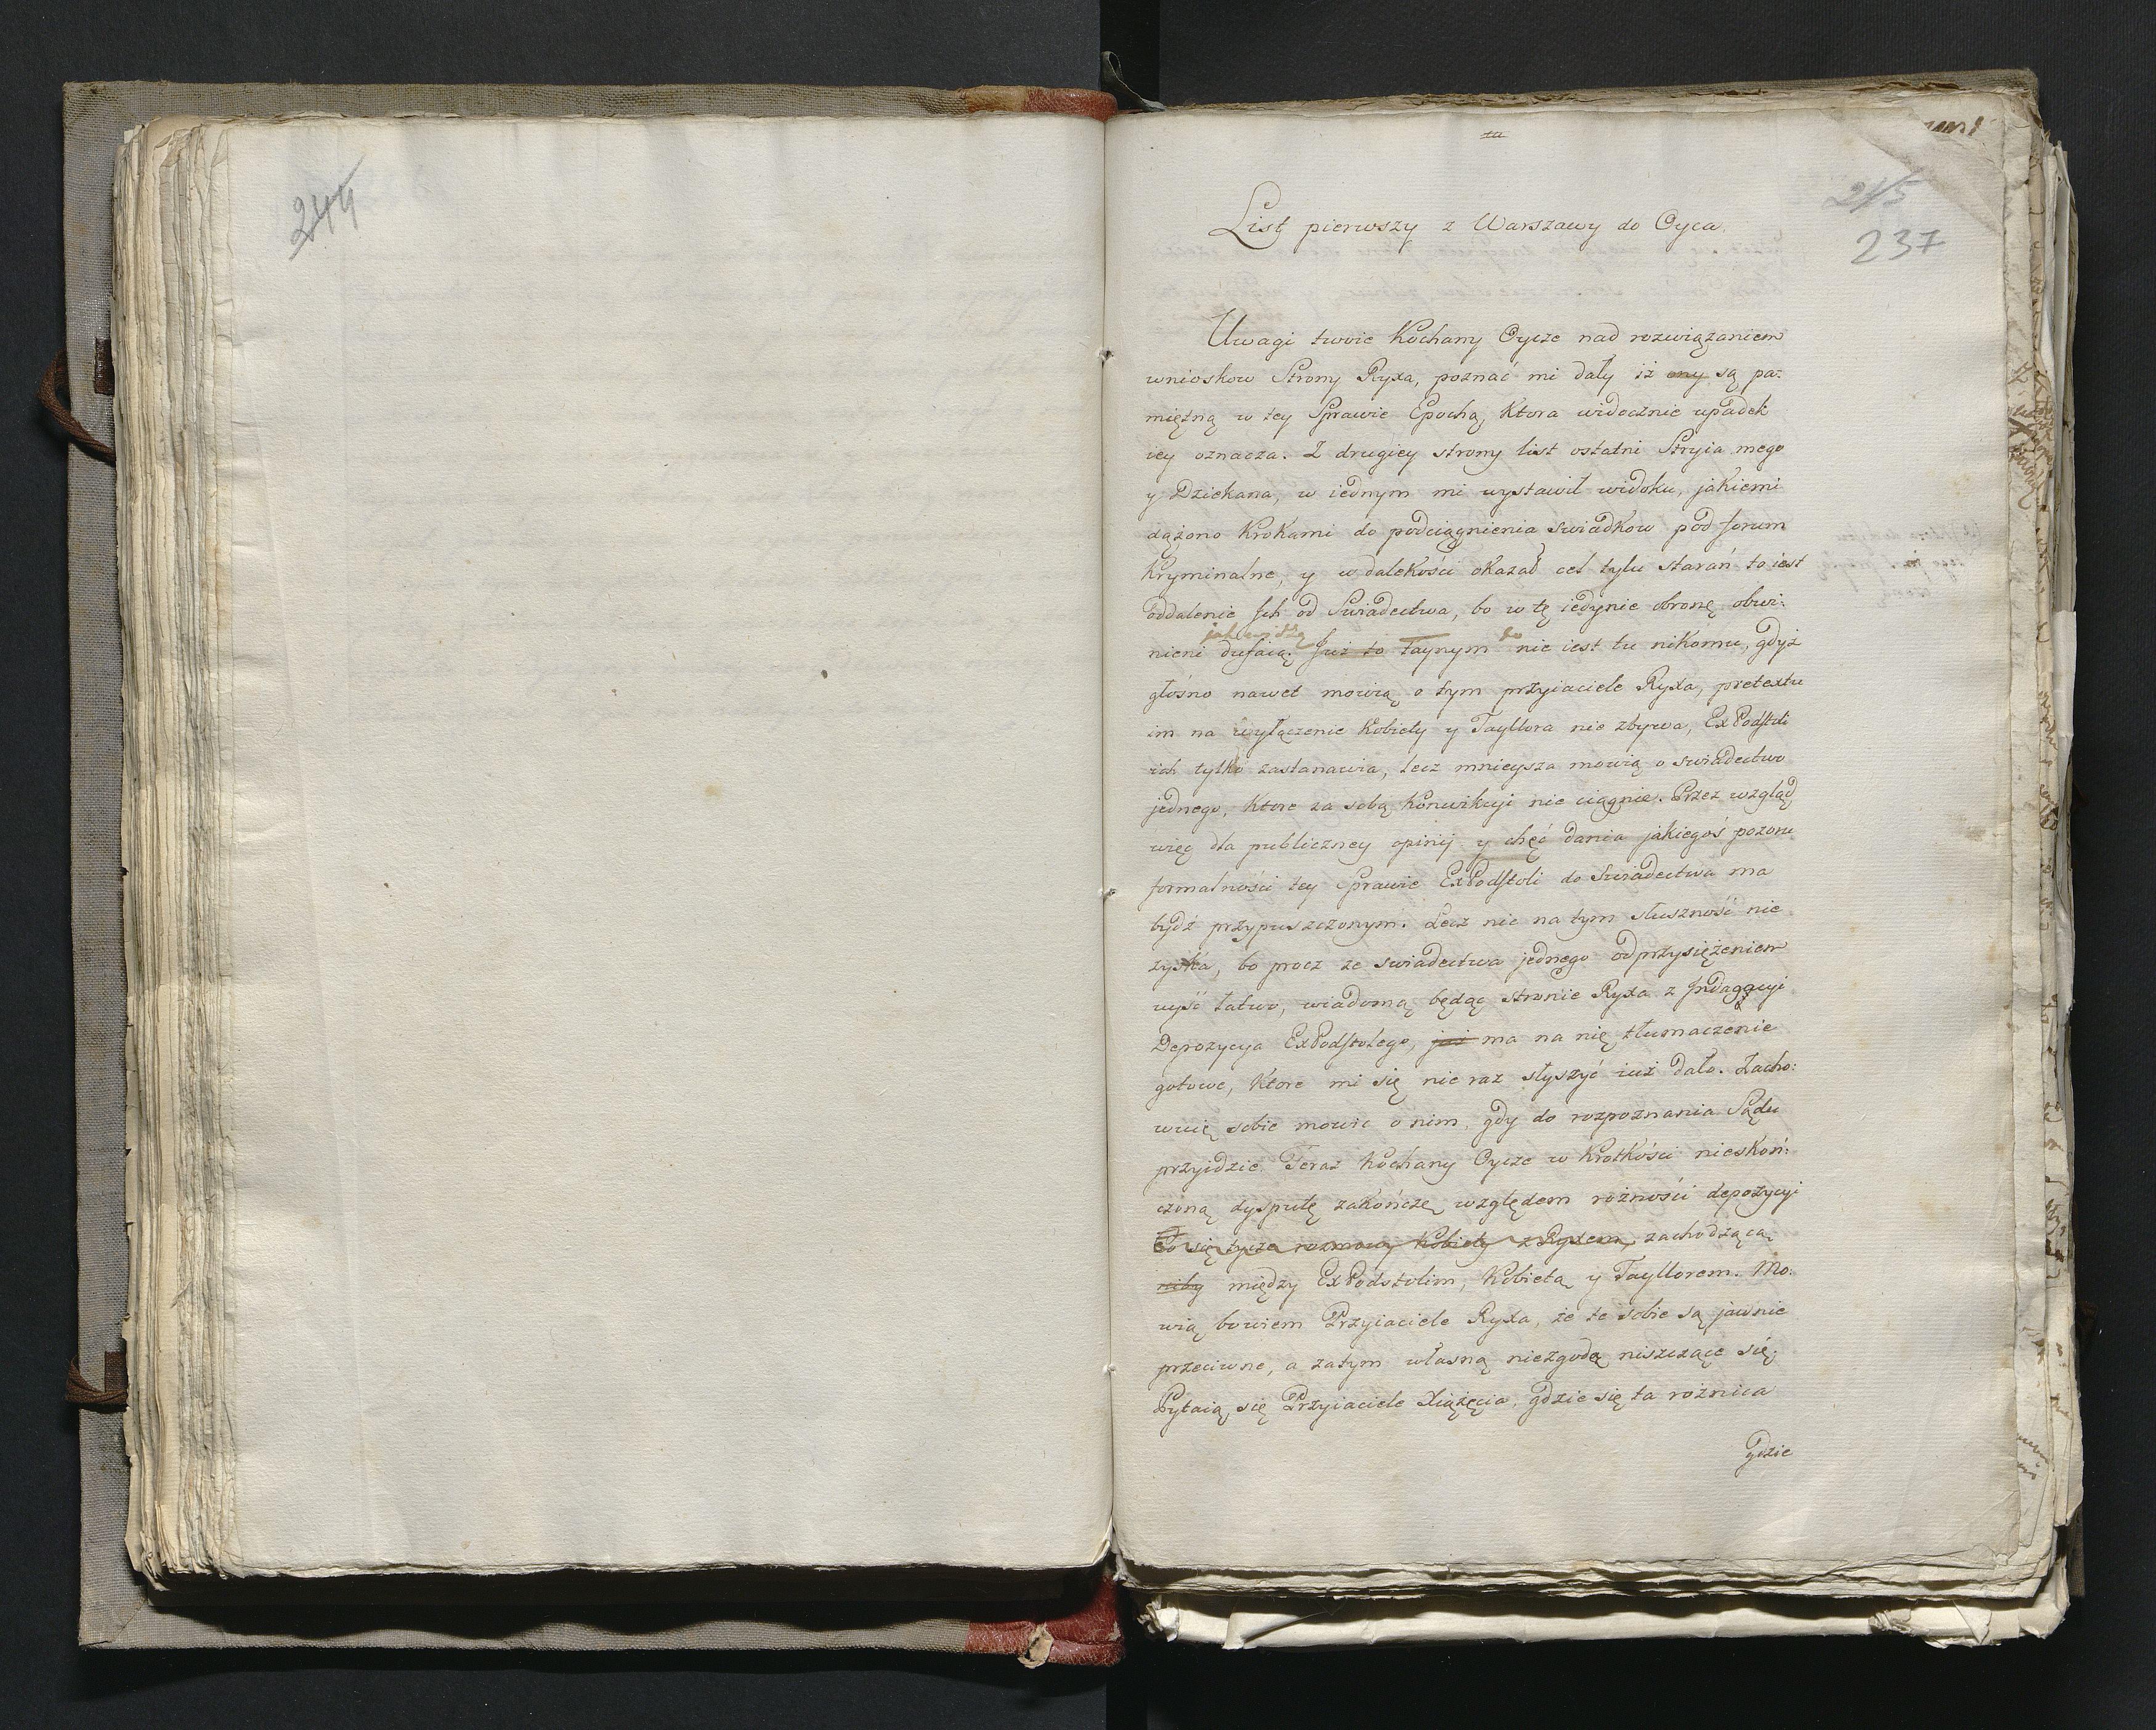 244
215
237
List pierwszy z Warszawy do Oyca.
Uwagi twoie Kochany Oycze nad rozwiązaniem
wnioskow Strony Ryxa, poznać mi dały iż ony są pa:
miętną w tey Sprawie Epochą, Ktora widocznie upadek
iey oznacza. Z drugiey strony list ostatni Stryia mego
y Dziekana, w iednym mi wystawił widoku, jakiemi
dążono Krokami do podciągnienia swiadkow pod forum
Kryminalne, y w dalekości okazał cel tylu starań to iest
oddalenie Ich od Swiadectwa, bo w tę iedynie obronę obwi:
jak widzą do
nieni dufaią. Już to Taynym nie iest tu nikomu, gdyż
głośno nawet mowią o tym przyiaciele Ryxa, pretextu
im na wyłączenie Kobiety y Tayllora nie zbywa, ExPodstoli
ich tylko zastanawia, lecz mnieysza mowią o swiadectwo
jednego, Ktore za sobą Konwikcyi nie ciągnie. Przez wzgląd
więc dla publiczney opinij y chęć dania jakiegoś pozoru
formalności tey Sprawie ExPodstoli do Swiadectwa ma
bydź przypuszczonym. Lecz nic na tym słuszność nie
zyska, bo procz ze swiadectwa jednego odprzysiężeniem
wyść łatwo, wiadomą będąc stronie Ryxa z Indagacyi
Depozycya ExPodstolego, już ma na nię tłumaczenie
gotowe, Ktore mi się nie raz słyszyć iuż dało. Zacho:
wuię sobie mowić o nim, gdy do rozpoznania Sądu
przyidzie. Teraz Kochany Oycze w Krotkości nieskoń:
czoną dysputę zakończę względem rożności depozycyi
Co się tycze rozmowy Kobiety z Ryxem, zachodzącą
niby między ExPodstolim, Kobietą y Tayllorem. Mo:
wią bowiem Przyiaciele Ryxa, że te sobie są jawnie
przeciwne, a zatym własną niezgodą niszczące się.
Pytaią się Przyiaciele Xiążęcia, gdzie się ta rożnica
gdzie